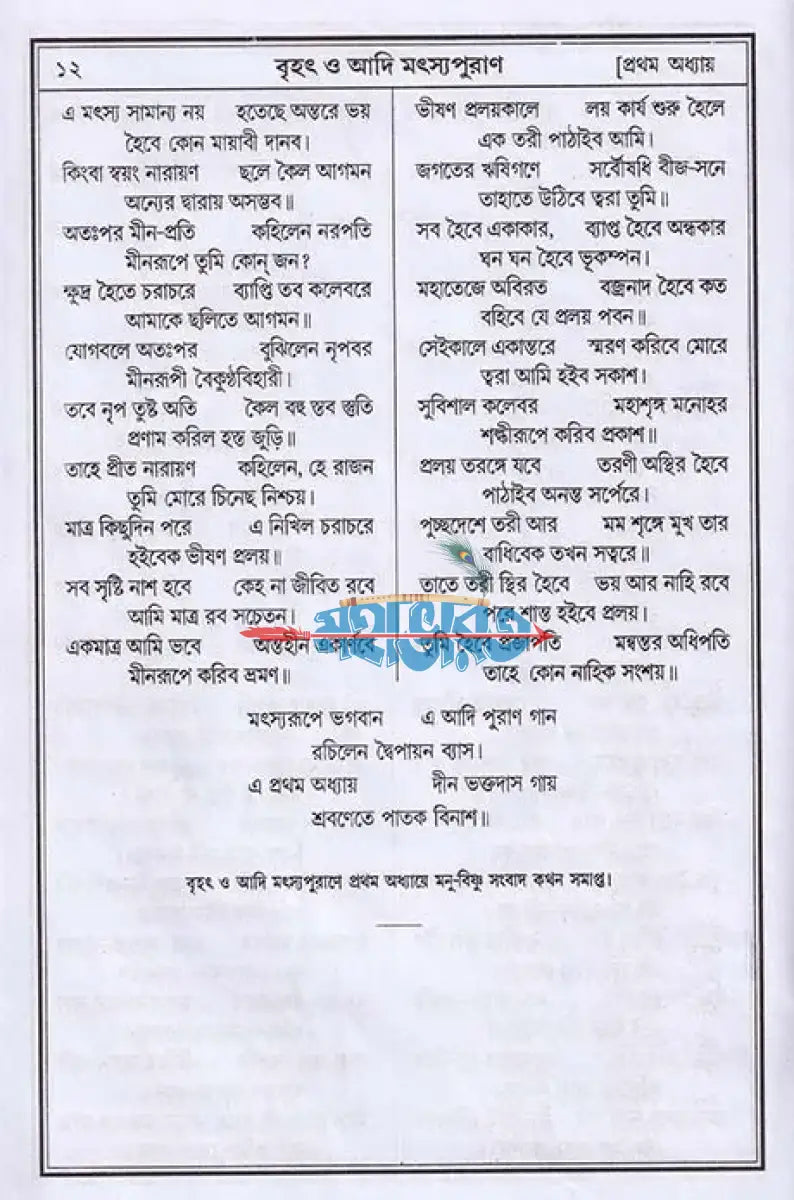 ১২
বৃহৎ ও আদি মৎস্যপুরাণ
[প্রথম অধ্যায়
এ মৎস্য সামান্য নয় হতেছে অন্তরে ভয়
হৈবে কোন মায়াবী দানব।
কিংবা স্বয়ং নারায়ণ ছলে কৈল আগমন
অন্যের দ্বারায় অসম্ভব॥
অতঃপর মীন-প্রতি কহিলেন নরপতি
মীনরূপে তুমি কোন্ জন?
ক্ষুদ্র হৈতে চরাচরে ব্যাপ্তি তব কলেবরে
আমাকে ছলিতে আগমন॥
যোগবলে অতঃপর বুঝিলেন নৃপবর
মীনরূপী বৈকুণ্ঠবিহারী।
তবে নৃপ তুষ্ট অতি কৈল বহু স্তব স্তুতি
প্রণাম করিল হস্ত জুড়ি॥
তাহে প্রীত নারায়ণ কহিলেন, হে রাজন
তুমি মোরে চিনেছ নিশ্চয়।
মাত্র কিছুদিন পরে এ নিখিল চরাচরে
হইবেক ভীষণ প্রলয়॥
সব সৃষ্টি নাশ হবে কেহ না জীবিত রবে
আমি মাত্র রব সচেতন।
একমাত্র আমি ভবে অন্তহীন একার্ণবে
মীনরূপে করিব ভ্রমণ॥
ভীষণ প্রলয়কালে লয় কার্য শুরু হৈলে
এক তরী পাঠাইব আমি।
জগতের ঋষিগণে সর্বৌষধি বীজ-সনে
তাহাতে উঠিবে ত্বরা তুমি॥
সব হৈবে একাকার, ব্যাপ্ত হৈবে অন্ধকার
ঘন ঘন হৈবে ভূকম্পন।
মহাতেজে অবিরত বজ্রনাদ হৈবে কত
বহিবে যে প্রলয় পবন॥
সেইকালে একান্তরে স্মরণ করিবে মোরে
ত্বরা আমি হইব সকাশ।
সুবিশাল কলেবর মহাশৃঙ্গ মনোহর
শল্কীরূপে করিব প্রকাশ॥
প্রলয় তরঙ্গে যবে তরণী অস্থির হৈবে
পাঠাইব অনন্ত সর্পেরে।
পুচ্ছদেশে তরী আর মম শৃঙ্গে মুখ তার
বাধিবেক তখন সত্বরে॥
তাতে তরী স্থির হৈবে ভয় আর নাহি রবে
পরে শান্ত হইবে প্রলয়।
তুমি হৈবে প্রজাপতি মন্বন্তর অধিপতি
তাহে কোন নাহিক সংশয়॥
মহাভারত
মৎস্যরূপে ভগবান এ আদি পুরাণ গান
রচিলেন দ্বৈপায়ন ব্যাস।
এ প্রথম অধ্যায় দীন ভক্তদাস গায়
শ্রবণেতে পাতক বিনাশ॥
বৃহৎ ও আদি মৎস্যপুরাণে প্রথম অধ্যায়ে মনু-বিষ্ণু সংবাদ কথন সমাপ্ত।